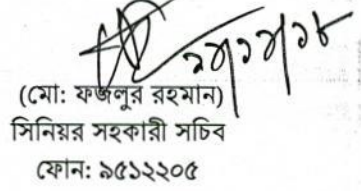 (মো: ফজলুর রহমান)
সিনিয়র সহকারী সচিব
ফোন: ৯৫১২২০৫